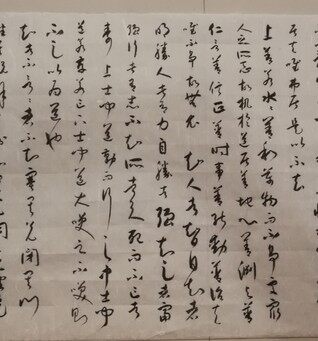 夫唯弗居是以不去
上善若水水善利萬物而不爭處眾
人之所惡故幾於道居善地心善淵與善
仁言善信正善治事善能動善時夫
唯不爭故無尤 知人者智自知者
明勝人者有力自勝者強知足者富
強行者有志不失其所者久死而不亡者
壽 上士聞道勤而行之中士聞
道若存若亡下士聞道大笑之不笑則
不足以為道也
知者不言言者不知塞其兌閉其門